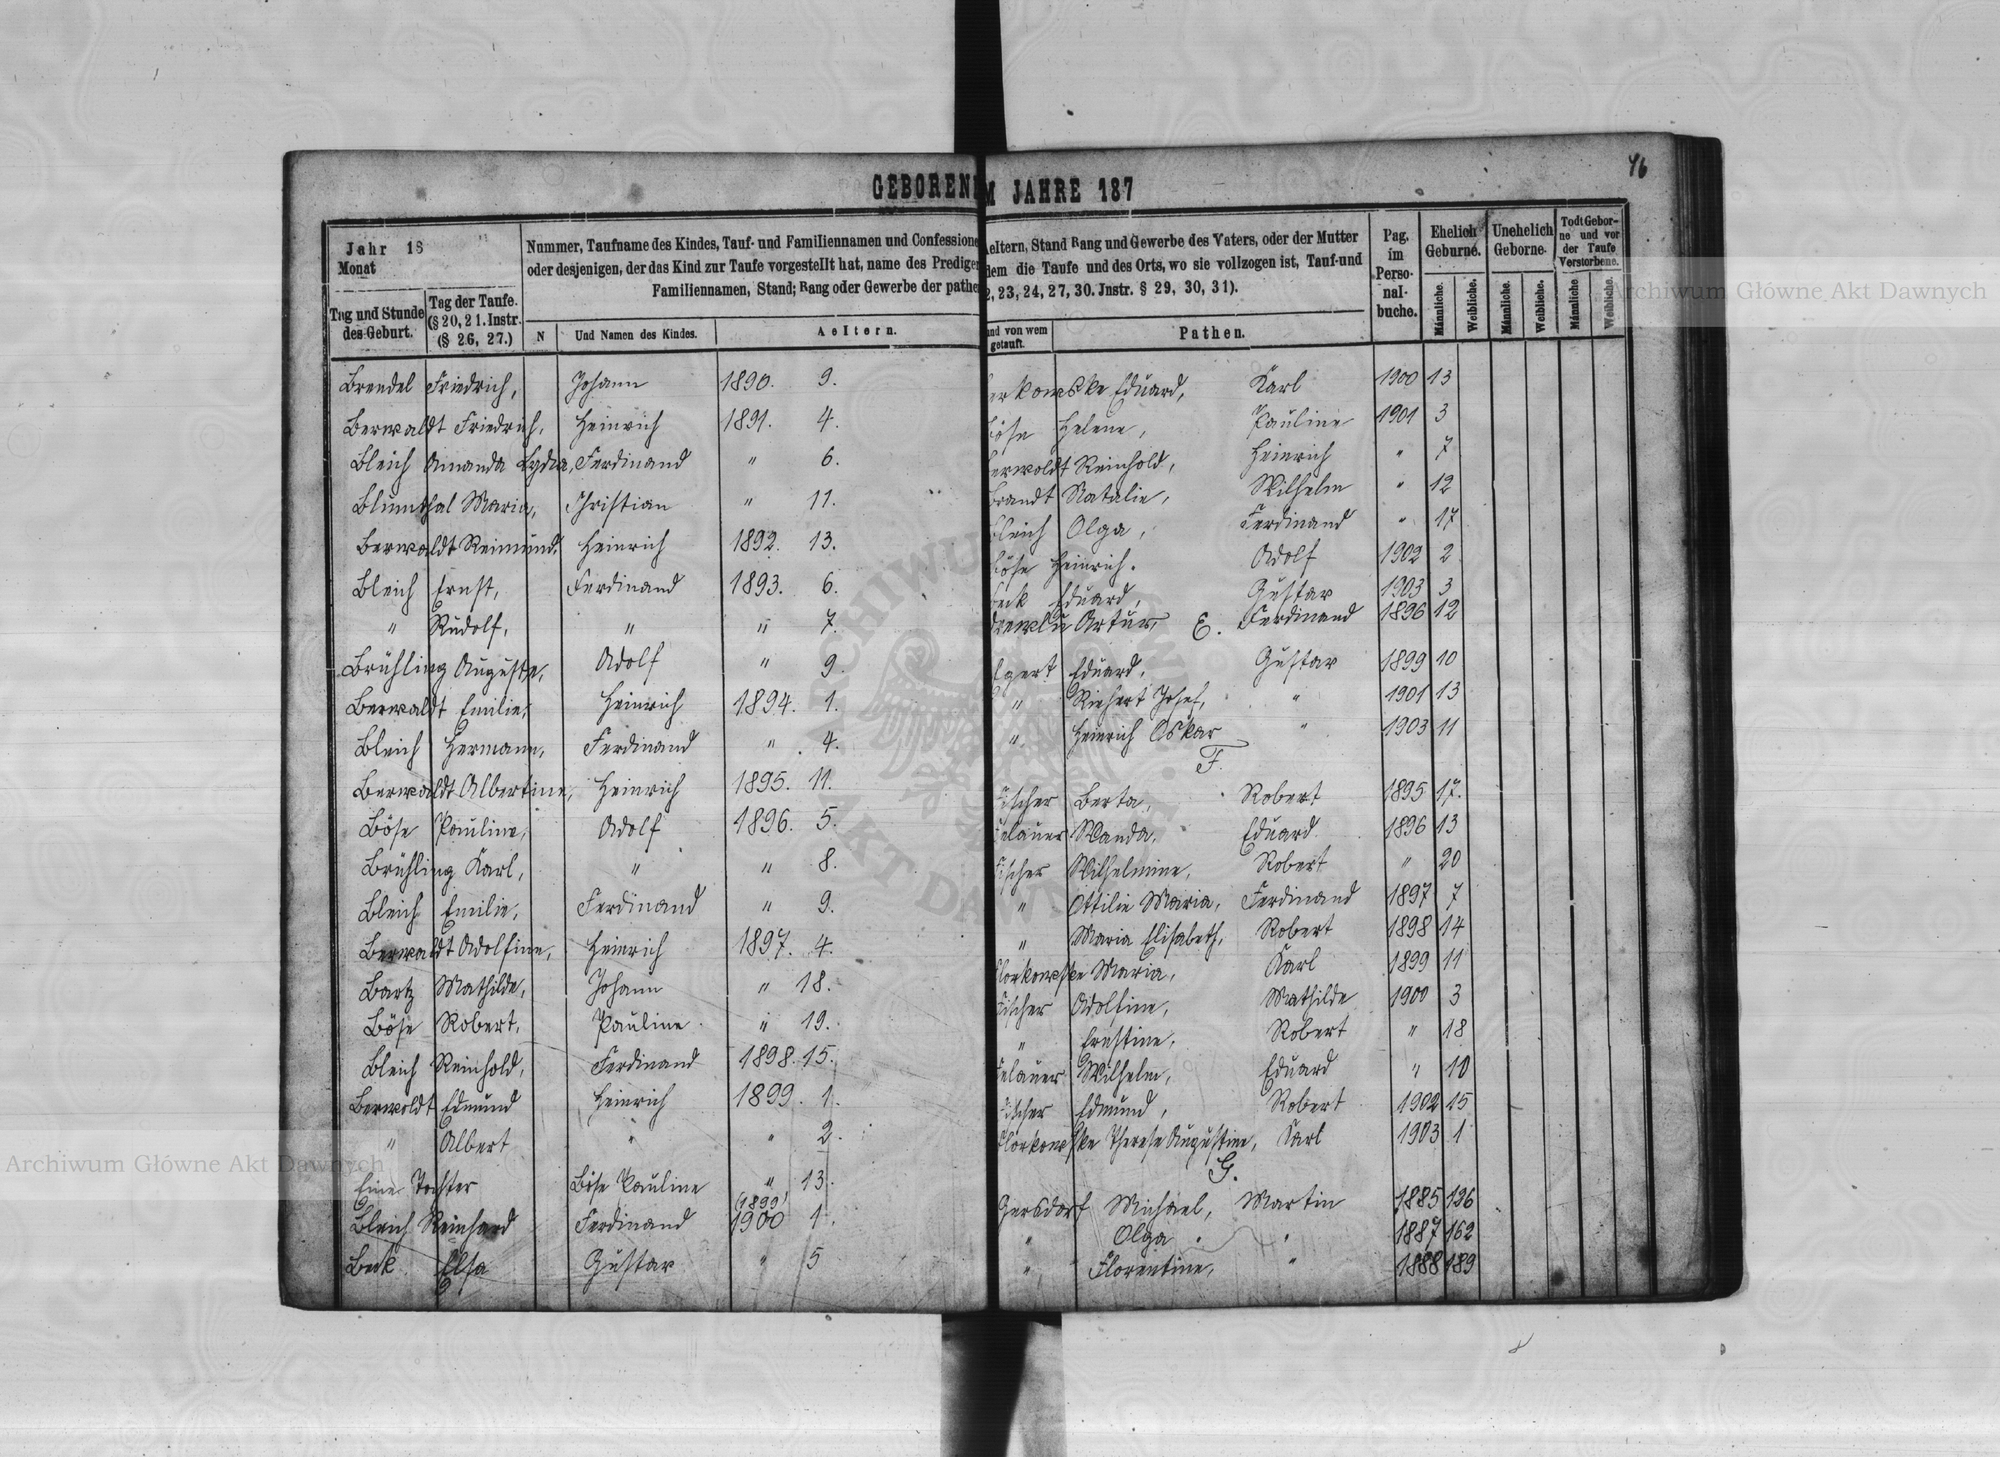 46
GEBORENE
M JAHRE 187
Jahr 18
Monat
Tag und Stunde des Geburt.
Tag der Taufe. (§ 20, 21. Instr. (§ 26, 27.)
Nummer, Taufname des Kindes, Tauf- und Familiennamen und Confessione
oder desjenigen, der das Kind zur Taufe vorgestellt hat, name des Prediger
Familiennamen, Stand; Rang oder Gewerbe der pathe
N
Und Namen des Kindes.
Aeltern.
Brendel Friedrich, Johann 1890. 9.
Berwaldt Friedrich, Heinrich 1891. 4.
Bleich Amanda Lydia, Ferdinand " 6.
Blumthal Maria, Christian " 11.
Berwaldt Reimund, Heinrich 1892. 13.
Bleich Ernst, Ferdinand 1893. 6.
" Rudolf, " " 7.
Brühling Auguste, Adolf " 9.
Berwaldt Emilie, Heinrich 1894. 1.
Bleich Hermann, Ferdinand " 4.
Berwaldt Albertine, Heinrich 1895. 11.
Böse Pauline, Adolf 1896. 5.
Brühling Karl, " " 8.
Bleich Emilie, Ferdinand " 9.
Berwaldt Adolfine, Heinrich 1897. 4.
Bartz Mathilde, Johann " 18.
Böse Robert, Pauline " 19.
Bleich Reinhold, Ferdinand 1898. 15.
Berwoldt Edmund Heinrich 1899. 1.
" Albert " " 2.
Eine Tochter Böse Pauline " 13.
(1899)
Bleich Reinhard Ferdinand 1900 1.
Beck Elsa Gustav " 5
aeltern, Stand Rang und Gewerbe des Vaters, oder der Mutter
dem die Taufe und des Orts, wo sie vollzogen ist, Tauf-und
2, 23, 24, 27, 30. Jnstr. § 29, 30, 31).
und von wem getauft.
Pathen.
Pag. im Perso- nal- buche.
Ehelich Geburne.
Unehelich Geborne.
Todt Gebor- ne und vor der Taufe Verstorbene.
Männliche. Weibliche. Männliche. Weibliche. Männliche Weibliche.
erkowske Eduard, Karl 1900 13
Böse Helene, Pauline 1901 3
erwoldt Reinhold, Heinrich " 7
Brandt Natalie, Wilhelm " 12
Bleich Olga, Ferdinand " 17
Böse Heinrich. Adolf 1902 2
Beck Eduard, Gustav 1903 3
Artur, Ferdinand 1896 12
E.
Egert Eduard, Gustav 1899 10
" Richert Josef, " 1901 13
" Heinrich Oskar " 1903 11
F.
Fischer Berta, Robert 1895 17.
elauer Wanda, Eduard 1896 13
Fischer Wilhelmine, Robert " 20
" Ottilie Maria, Ferdinand 1897 7
" Maria Elisabeth, Robert 1898 14
Florkowske Maria, Karl 1899 11
Fischer Adolfine, Mathilde 1900 3
" Ernstine, Robert " 18
elauer Wilhelm, Eduard " 10
Fischer Edmund, Robert 1902 15
Florkowske Therese Augustine, Karl 1903 1
G.
Gersdorf Michael, Martin 1885 126
" Olga " 1887 162
" Florentine, " 1888 189
Archiwum Główne Akt Dawnych
Archiwum Główne Akt Dawnych
ARCHIWUM GŁÓWNE AKT DAWNYCH